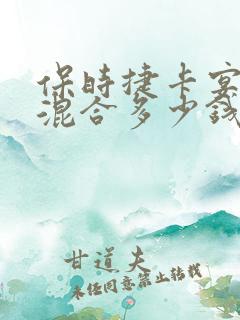 保时捷卡宴
混合多少钱
甘道夫
未经同意禁止转载